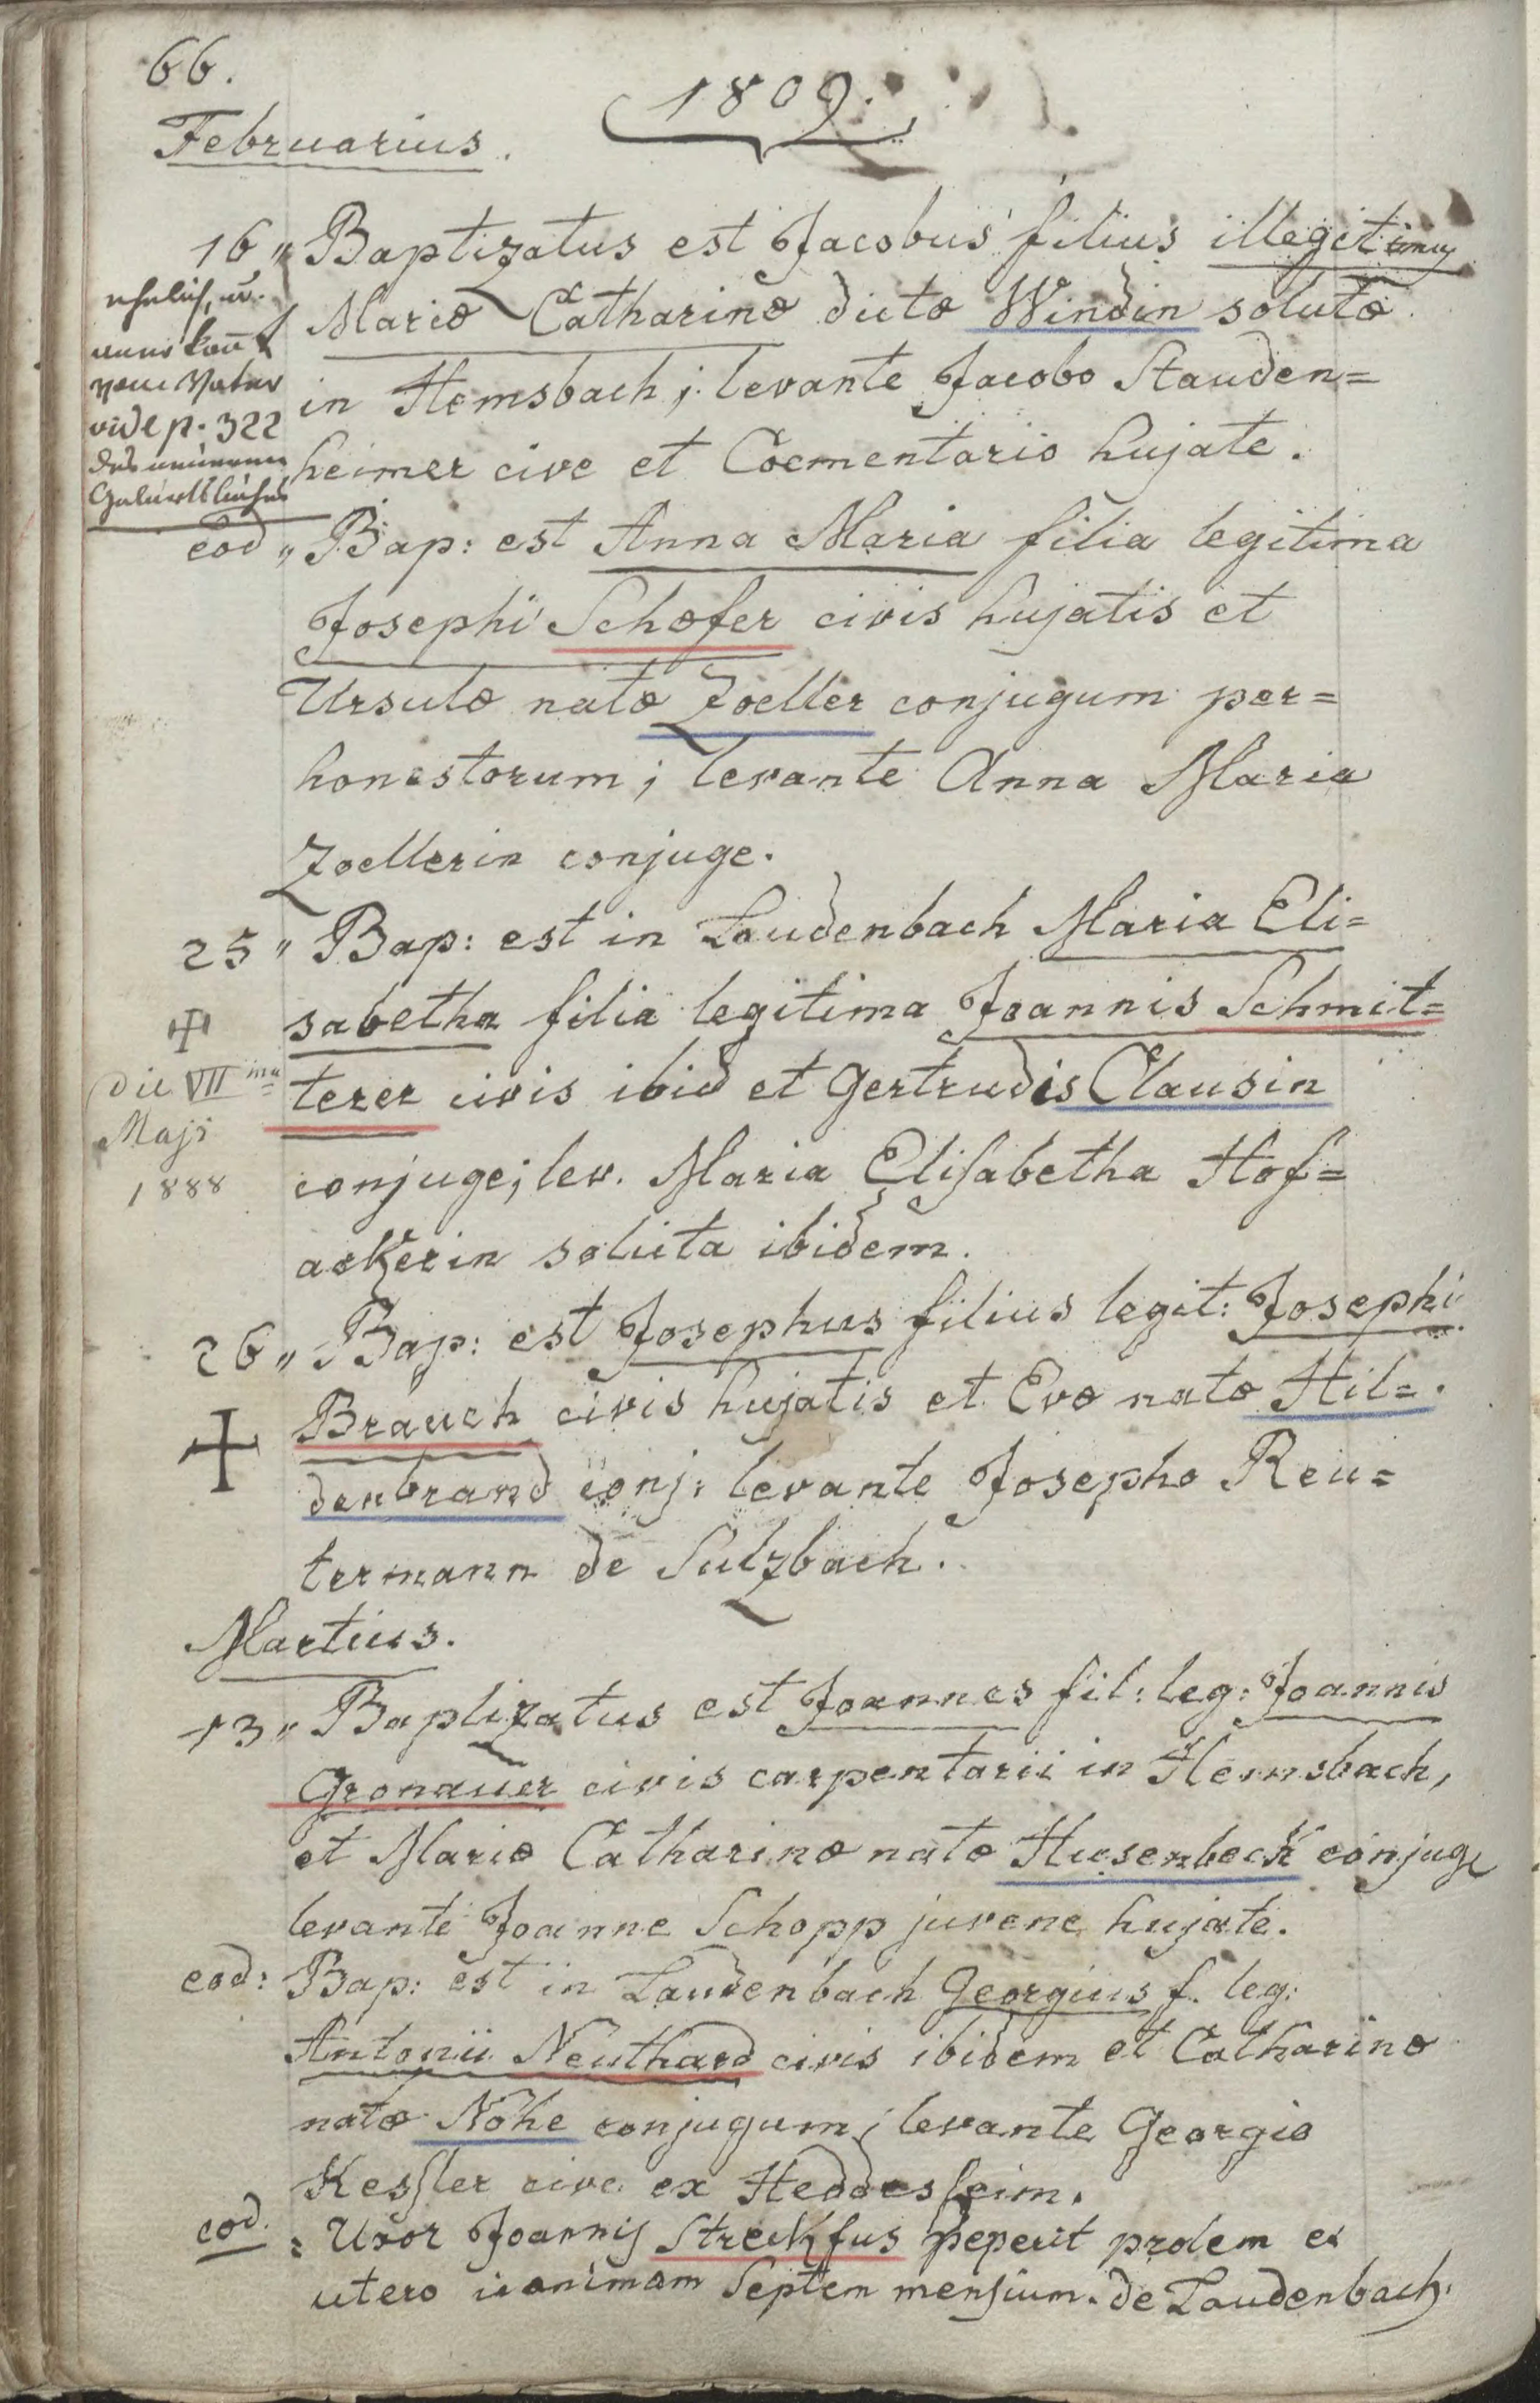 66.
1809.
Februarius.
16 „ Baptizatus est Jacobus filius illegitimus
Mariæ Catharinæ dictæ Windin solutæ
in Hemsbach; levante Jacobo Stauden=
heimer cive et Coementario hujate.
ehelich, u.
anerkannt
vom Vater
vide p. 322
des neueren
Geburtsbuches
eod „ Bap: est Anna Maria filia legitima
Josephi Schæfer civis hujatis et
Ursulæ natæ Zoeller conjugum per=
honestorum; levante Anna Maria
Zoellerin conjuge.
25 „ Bap: est in Laudenbach Maria Eli=
sabetha filia legitima Joannis Schmit=
terer civis ibid et Gertrudis Clausin
conjuge; lev. Maria Elisabetha Hof=
ackerin soluta ibidem.
✝
die VII ma
Maji
1888
26 „ Bap: est Josephus filius legit: Josephi
Brauch civis hujatis et Evæ natæ Hil=
denbrand conj: levante Josepho Reu=
termann de Sulzbach.
✝
Martius.
13 „ Baptizatus est Joannes fil: leg: Joannis
Gronauer civis carpentarii in Hemsbach,
et Mariæ Catharinæ natæ Husenbeck conjuge
levante Joanne Schopp juvene hujate.
eod: Bap: est in Laudenbach Georgius f. leg:
Antonii Neuthard civis ibidem et Catharinæ
natæ Nöhe conjugum; levante Georgio
Kessler cive ex Heddesheim.
eod. : Uxor Joannis Streckfus peperit prolem ex
utero inanimam Septem mensium. de Laudenbach.